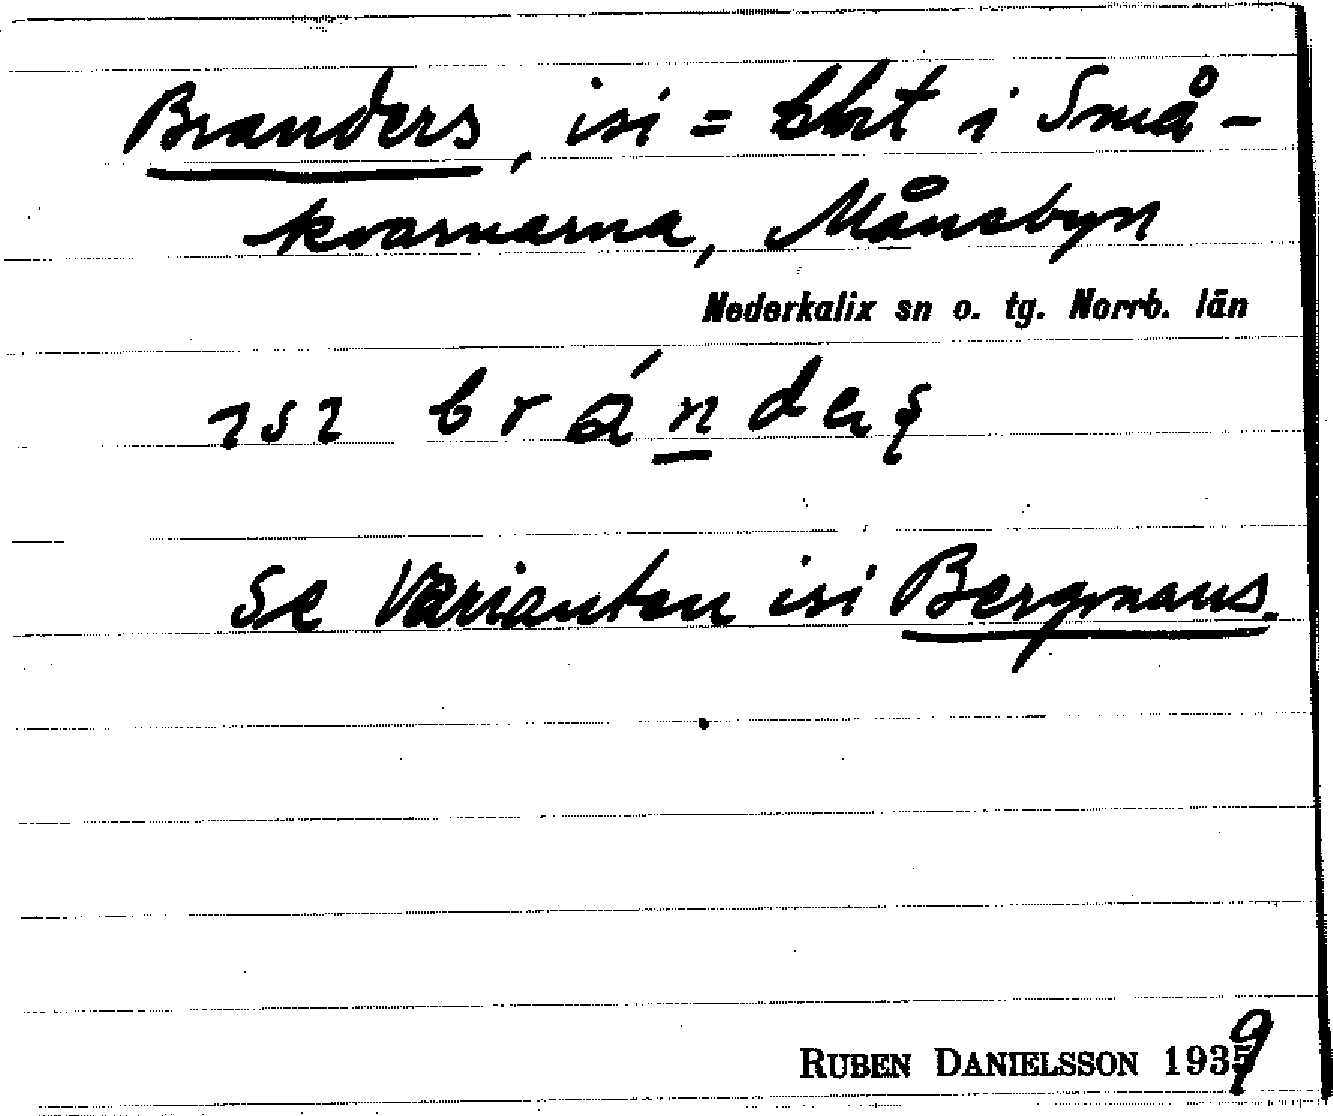 Branders, isi = bbt i Små-
kvarnarna, Månsbyn
Nederkalix sn o. tg. Norrb. län
ısı brándaș
Se Varianten isi Bergmans.
RUBEN DANIELSSON 1939